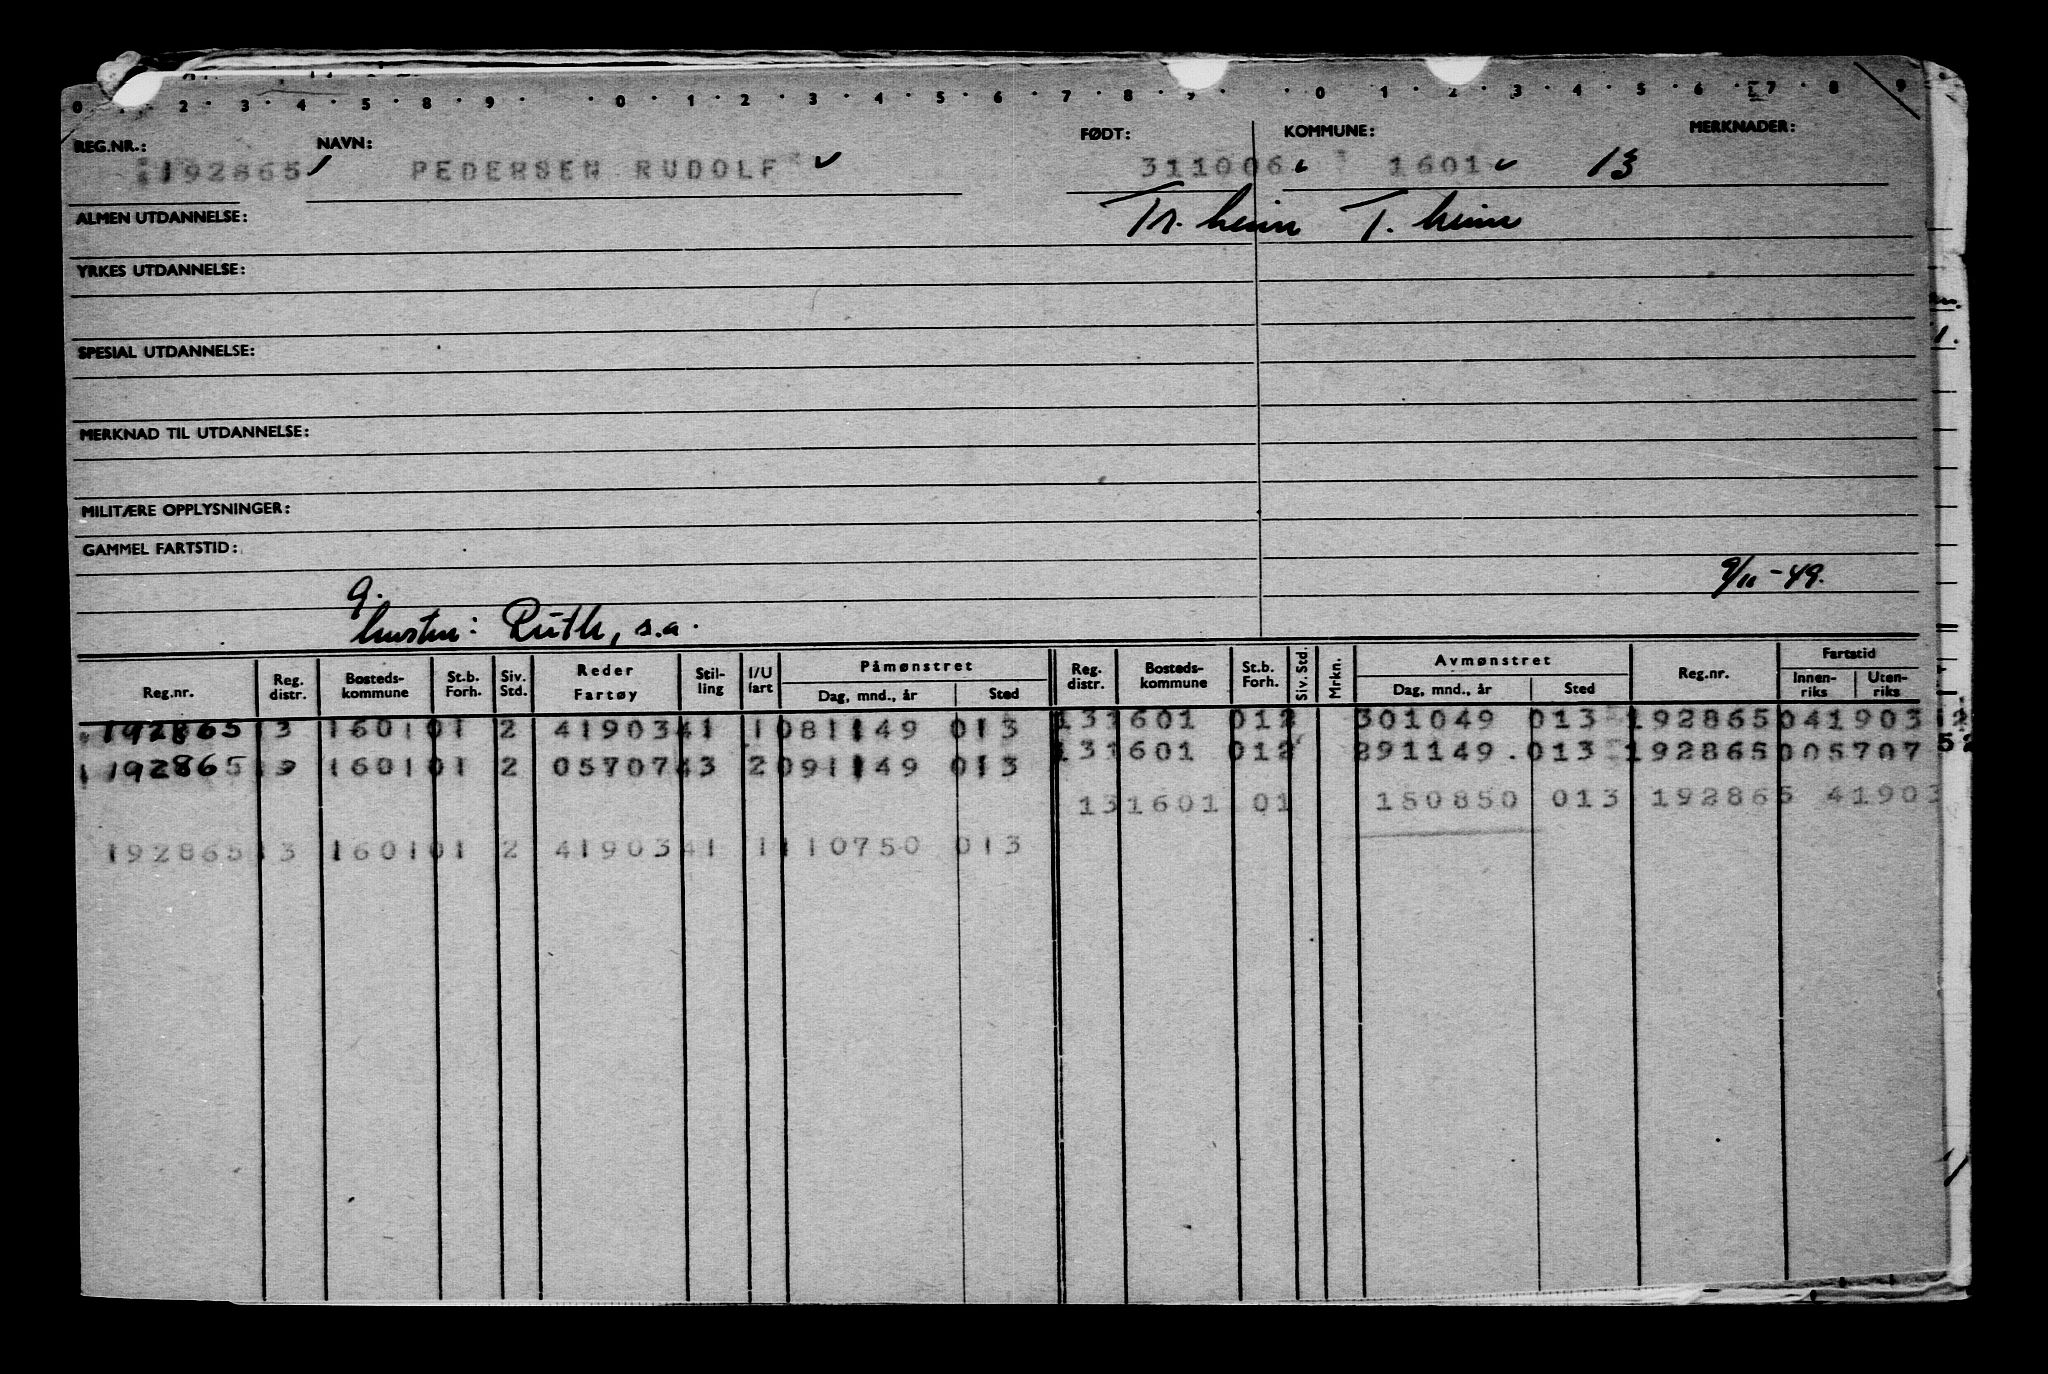 0 . . 2 . 3 . 4 . 5 . 8 . 9 . . 0 . 1 . 2 . 3 . 4 . 5 . 6 . 7 . 8 . 9 . . 0 . 1 . 2 . 3 . 4 . 5 . 6 . 7 . 8 . 9
REG.NR.: NAVN: FØDT: KOMMUNE: MERKNADER:
192865 PEDERSEN RUDOLF 311006 1601 13
ALMEN UTDANNELSE: Tr. heim T. heim
YRKES UTDANNELSE:
SPESIAL UTDANNELSE:
MERKNAD TIL UTDANNELSE:
MILITÆRE OPPLYSNINGER:
GAMMEL FARTSTID:
9/11-49.
g.
hustru: Ruth, s.a.
Reg.nr. Reg. distr. Bosteds-kommune St.b. Forh. Siv. Std. Reder Fartøy Stil-ling I/U fart Påmønstret Dag, mnd., år Sted Reg. distr. Bosteds-kommune St.b. Forh. Siv. Std. Mrkn. Avmønstret Dag, mnd., år Sted Reg.nr. Fartstid Innen-riks Uten-riks
192865 13 1601 01 2 41903 41 1 081149 013 131601 012 301049 013 192865 041903 12
192865 13 1601 01 2 05707 43 2 091149 013 131601 012 291149. 013 192865 005707 52
131601 01 150850 013 192865 41903
192865 13 1601 01 2 41903 41 1 110750 013